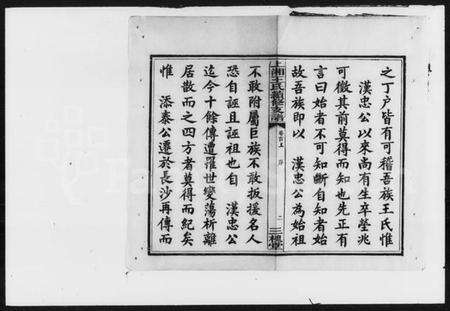 之丁戶皆有可稽吾族王氏惟
漢忠公以來尚有生卒塋兆
可徵其前莫得而知也先正有
言曰始者不可知斷自知者始
故吾族即以 漢忠公為始祖
上湘王氏續修支譜 卷首上 序 二 三槐堂
不敢附屬巨族不敢扳援名人
恐自誣且誣祖也自 漢忠公
迄今十餘傳遭罹世變蕩析離
居散而之四方者莫得而紀矣
惟 添泰公遷於長沙再傳而